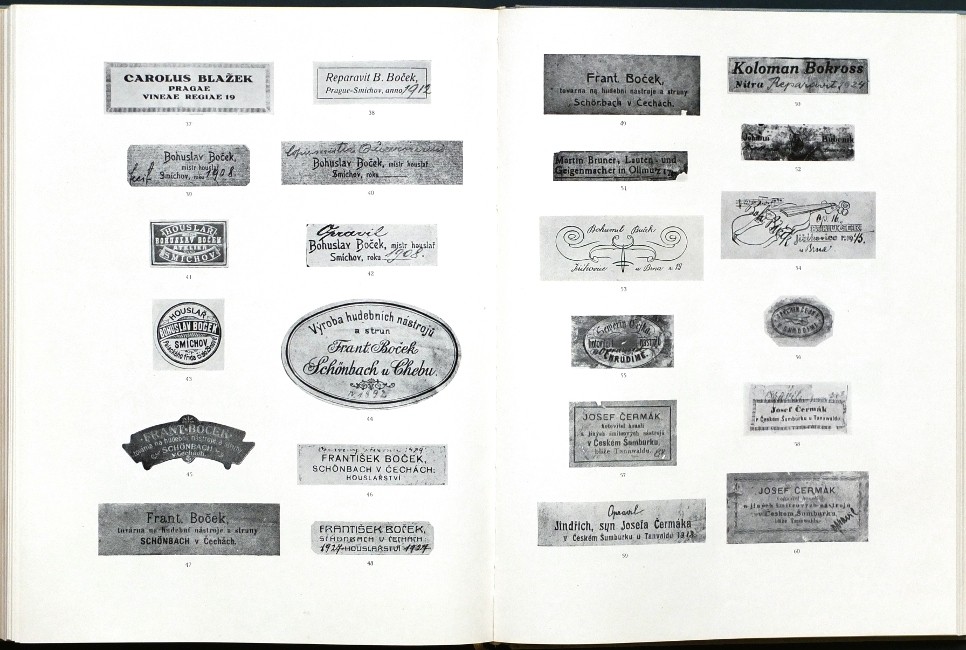 CAROLUS BLAŽEK
PRAGAE
VINEAE REGIAE 19
37
Reparavit B. Boček,
Prague-Smíchov, anno 1912
38
Bohuslav Boček,
mistr houslař
Smíchov, roku 1908.
39
Bohuslav Boček, mistr houslař
Smíchov, roku
40
HOUSLAŘ
BOHUSLAV BOČEK
ATELIER
SMÍCHOV
41
Opravil
Bohuslav Boček, mistr houslař
Smíchov, roku 1908.
42
HOUSLAŘ
BOHUSLAV BOČEK
SMÍCHOV
43
Výroba hudebních nástrojů
a strun
Frant. Boček
Schönbach u Chebu.
1892
44
FRANT. BOČEK
továrna na hudební nástroje a struny
SCHÖNBACH
v Čechách.
45
FRANTIŠEK BOČEK,
SCHÖNBACH V ČECHÁCH.
HOUSLAŘSTVÍ
46
Frant. Boček,
továrna na hudební nástroje a struny
SCHÖNBACH v Čechách.
47
FRANTIŠEK BOČEK,
SCHÖNBACH V ČECHÁCH.
1924 HOUSLAŘSTVÍ 1924
48
Frant. Boček,
továrna na hudební nástroje a struny
Schönbach v Čechách.
49
Koloman Bokross
Nitra Reparavit 1924
50
Martin Bruner, Lauten- und
Geigenmacher in Ollmütz
51
52
Bohumil Buček
Jiříkovic u Brna
53
Jiříkovice
u Brna
54
CHRUDIMĚ.
55
56
JOSEF ČERMÁK
hotovitel houslí
a jiných strunových nástrojů
v Českém Šumburku,
blíže Tannwaldu.
57
Josef Čermák
v Českém Šumburku u Tannwaldu
58
Opravil
Jindřich, syn Josefa Čermáka
v Českém Šumburku u Tanvaldu 1912
59
JOSEF ČERMÁK
hotovitel houslí
a jiných strunových nástrojů
v Českém Šumburku,
blíže Tannwaldu.
60